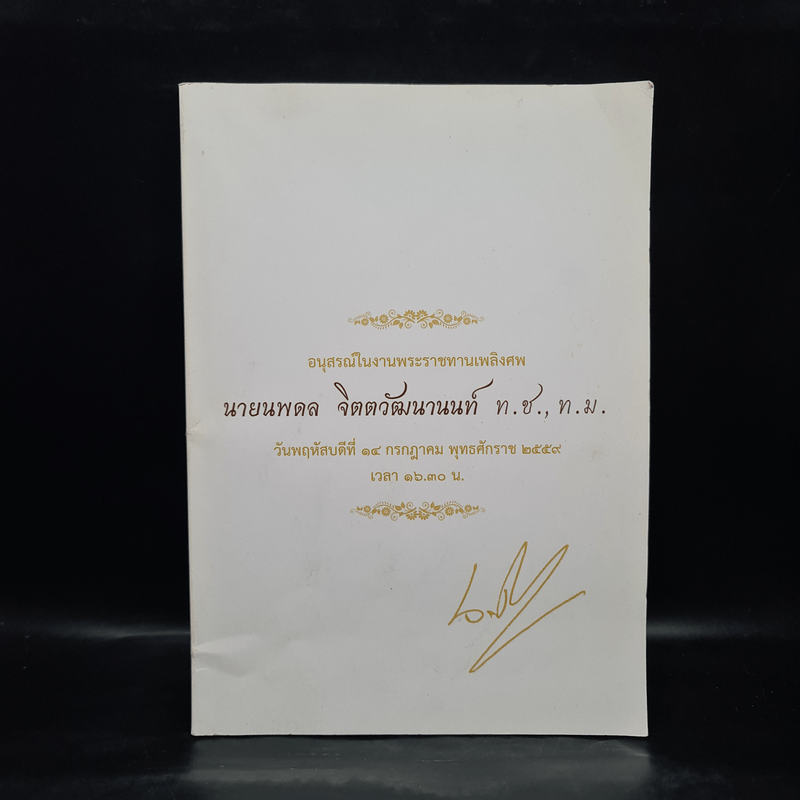 อนุสรณ์ในงานพระราชทานเพลิงศพ
นายนพดล จิตตวัฒนานนท์ ท.ช., ท.ม.
วันพฤหัสบดีที่ ๑๔ กรกฎาคม พุทธศักราช ๒๕๕๙
เวลา ๑๖.๓๐ น.